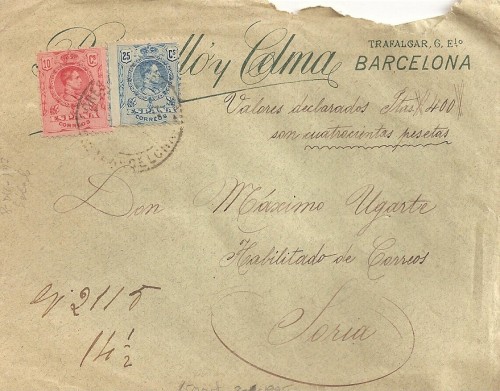 y Celma
TRAFALGAR, 6, E.lo
BARCELONA
10 Cs
CORREOS
25 Cs
CORREOS
BARCELONA
Valores declarados Ptas 400
son cuatrocientas pesetas
Don Máximo Ugarte
Habilitado de Correos
Soria
2115
14 1/2